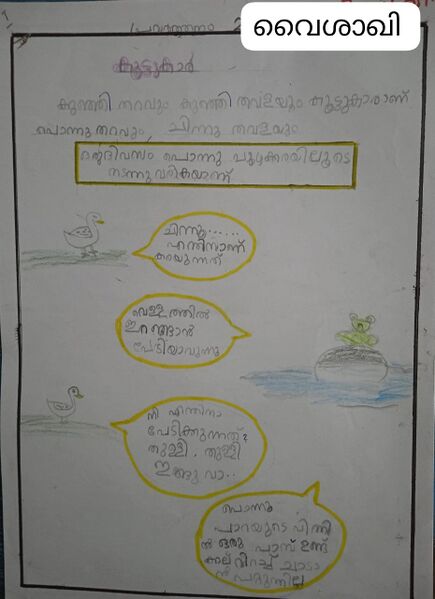 വൈശാഖി
പ്രവർത്തനം
കൂട്ടുകാർ
കുഞ്ഞി താറവും കുഞ്ഞി തവളയും കൂട്ടുകാരാണ്
പൊന്നു താറവും, ചിന്നു തവളയും
ഒരു ദിവസം പൊന്നു പുഴക്കരയിലൂടെ
നടന്നു വരികയാണ്
ചിന്നൂ......
എന്തിനാണ്
കരയുന്നത്
വെള്ളത്തിൽ
ഇറങ്ങാൻ
പേടിയാവുന്നു
നീ എന്തിനാ
പേടിക്കുന്നത്?
തുള്ളി . തുള്ളി
ഇങ്ങു വാ..
പൊന്നു
പാറയുടെ പിന്നി
ൽ ഒരു പാമ്പ് ഉണ്ട്
വിറച്ച് ചാടാ
ൻ പറ്റുന്നില്ല